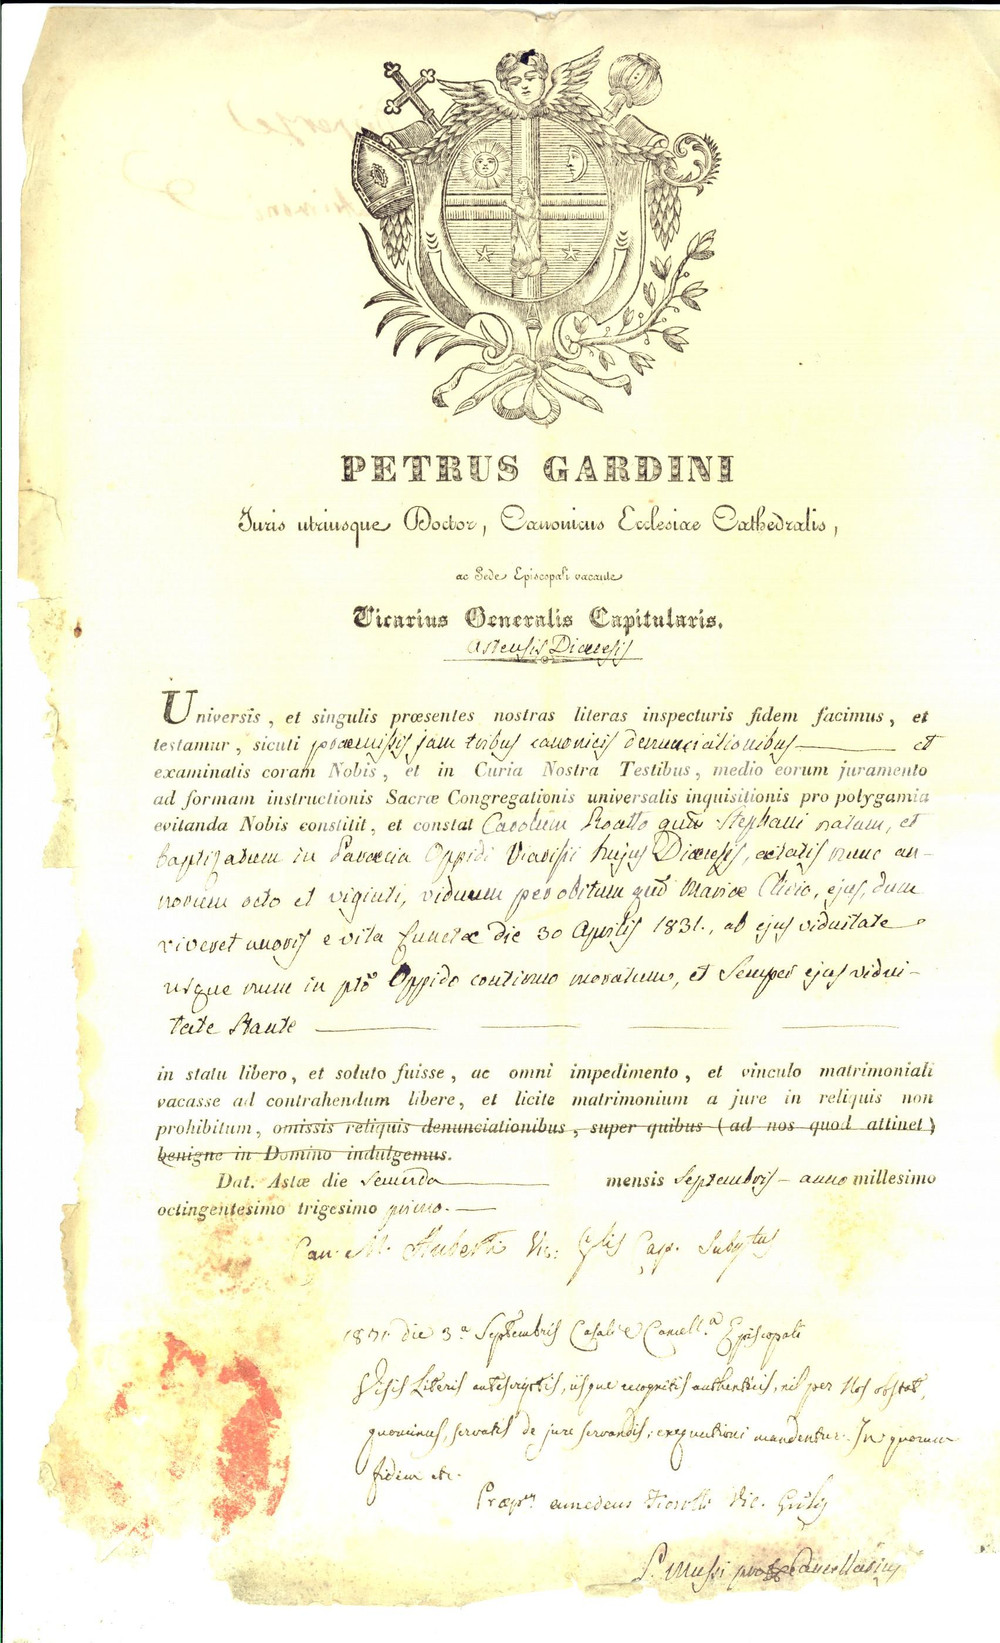 PETRUS GARDINI
Juris utriusque Doctor, Canonicus Ecclesiae Cathedralis,
ac Sede Episcopali vacante
Vicarius Generalis Capitularis.
Astensis Diœcesis
Universis, et singulis præsentes nostras literas inspecturis fidem facimus, et
testamur, sicuti præmissis jam tribus canonicis denunciationibus et
examinatis coram Nobis, et in Curia Nostra Testibus, medio eorum juramento
ad formam instructionis Sacræ Congregationis universalis inquisitionis pro polygamia
evitanda Nobis constitit, et constat Carolum Roatto qm̄ Stephani natum, et
baptizatum in Parœcia Oppidi Viarisii hujus Diœcesis, ætatis nunc an-
norum octo et viginti, viduum per obitum qm̄ Mariæ Clivio, ejus, dum
viveret uxoris e vita functæ die 30 Aprilis 1831., ab ejus viduitate
usque nunc in ptō Oppido continuo moratum, et semper ejus vidui-
tate stante
in statu libero, et soluto fuisse, ac omni impedimento, et vinculo matrimoniali
vacasse ad contrahendum libere, et licite matrimonium a jure in reliquis non
prohibitum, omissis reliquis denunciationibus, super quibus (ad nos quod attinet)
benigne in Domino indulgemus.
Dat. Astæ die secunda mensis Septembris - anno millesimo
octingentesimo trigesimo primo.
Can. M. Vic. Glis Cap. Subptus
1831 die 3a Septembris Casali e Cancell.a Episcopali
Visis Literis antescriptis, iisque recognitis authenticis, nil per Nos obstat,
quominus, servatis de jure servandis, executioni mandentur. In quorum
fidem etc.
Præp.us Amedeus Vic. Gnlis
P. Mussi pro Cancellarius